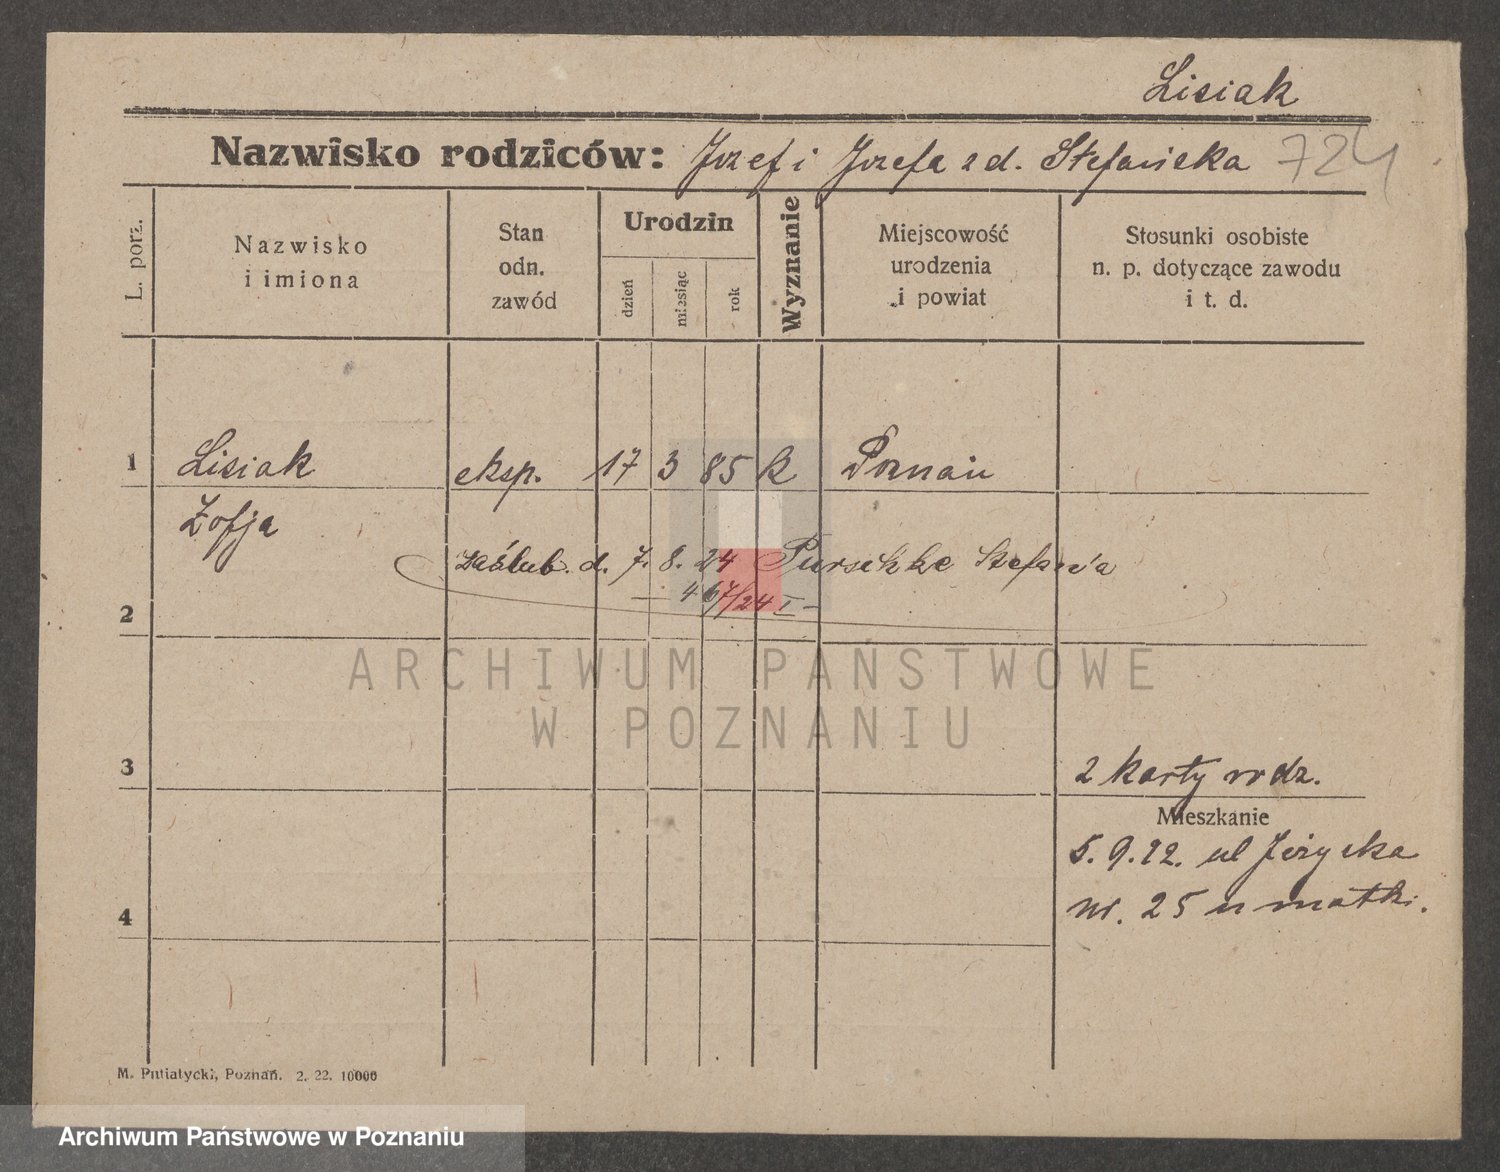 Lisiak
Nazwisko rodziców: Józef i Józefa z d. Stefańska 724
L. porz.
Nazwisko
i imiona
Stan
odn.
zawód
Urodzin
dzień
miesiąc
rok
Wyznanie
Miejscowość
urodzenia
i powiat
Stosunki osobiste
n. p. dotyczące zawodu
i t. d.
1 Lisiak eksp. 17 3 85 k Poznań
Zofja
zaślub. d. 7. 8. 24 Purschke Stefan'a
— 467/24 I —
2
ARCHIWUM PAŃSTWOWE
W POZNANIU
3 2 karty rodz.
Mieszkanie
5. 9. 22. ul Jeżycka
4 nr. 25 u matki.
M. Putiatycki, Poznań. 2. 22. 10000
Archiwum Państwowe w Poznaniu